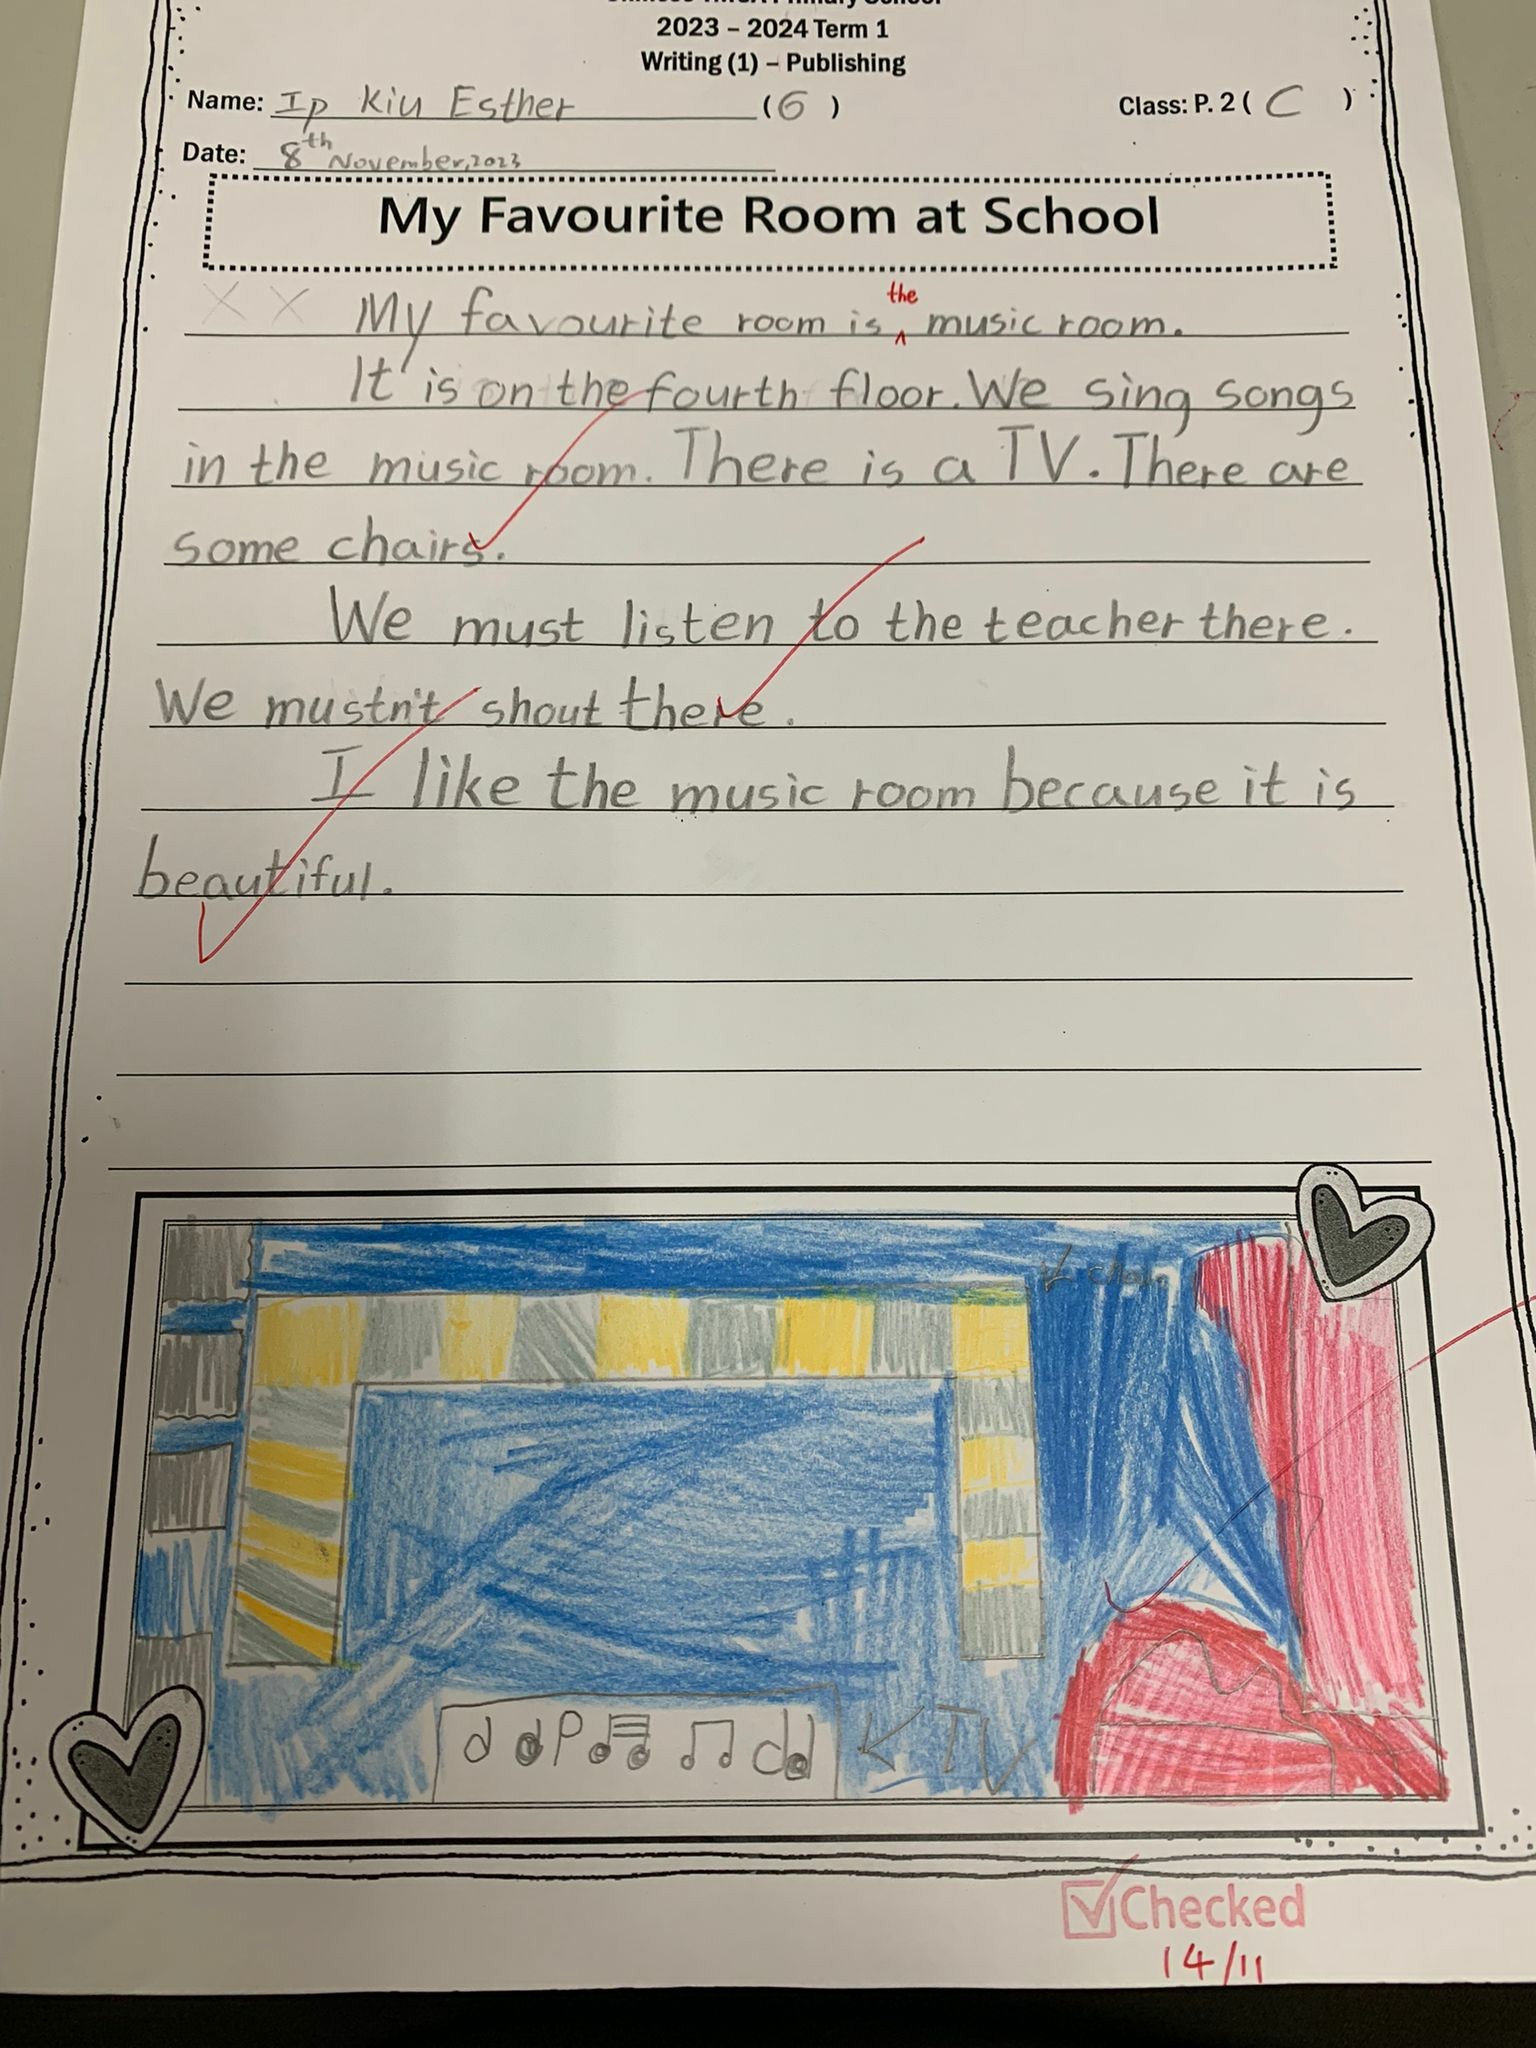 2023 – 2024 Term 1
Writing (1) – Publishing
Name: Ip Kiu Esther (6) Class: P. 2 ( C )
Date: 8th November, 2023
My Favourite Room at School
X X My favourite room is the music room.
It is on the fourth floor. We sing songs
in the music room. There is a TV. There are
some chairs.
We must listen to the teacher there.
We mustn't shout there.
I like the music room because it is
beautiful.
TV
Checked
14/11